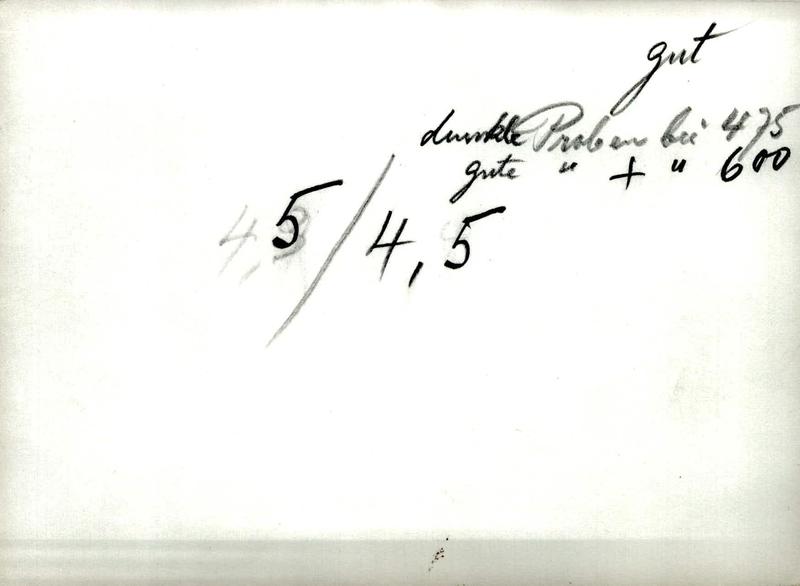 gut
dunkle Proben bei 475
gute " + " 600
5/4,5